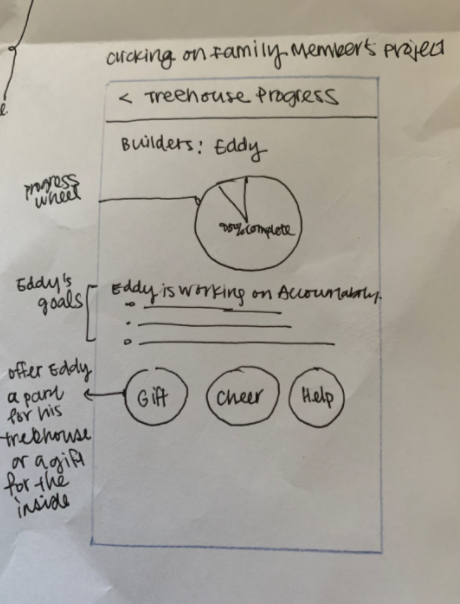 clicking on Family Member's project
e
< Treehouse Progress
Builders: Eddy
progress
wheel
complete
Eddy's
goals
Eddy is working on
offer Eddy
a part
for his
treehouse
or a gift
for the
inside
Gift
Cheer
Help